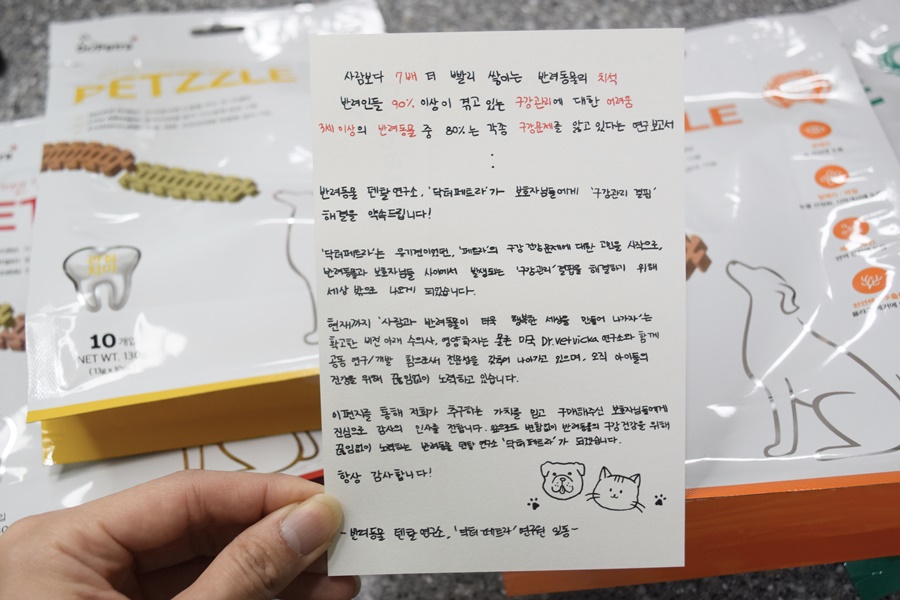 Dr.Petra
PETZZLE
10 개입
NET WT. 130
사람보다 7배 더 빨리 쌓이는 반려동물의 치석
반려인들 90% 이상이 겪고 있는 구강관리에 대한 어려움
3세 이상의 반려동물 중 80%는 각종 구강문제를 앓고 있다는 연구보고서
반려동물 덴탈연구소, '닥터페트라'가 보호자님들에게 '구강관리 결핍'
해결을 약속드립니다!
'닥터페트라'는 유기견이였던, '페트라'의 구강건강문제에 대한 고민을 시작으로,
반려동물과 보호자님들 사이에서 발생되는 '구강관리' 결핍을 해결하기 위해
세상 밖으로 나오게 되었습니다.
현재까지 '사람과 반려동물이 더욱 행복한 세상을 만들어 나가자'는
확고한 비전 아래 수의사, 영양학자는 물론 미국 Dr.vetvicka 연구소와 함께
공동 연구/개발 함으로서 전문성을 갖추어 나아가고 있으며, 오직 아이들의
건강을 위해 끊임없이 노력하고 있습니다.
이편지를 통해 저희가 추구하는 가치를 믿고 구매해주신 보호자님들에게
진심으로 감사의 인사를 전합니다. 앞으로도 변함없이 반려동물의 구강건강을 위해
끊임없이 노력하는 반려동물 덴탈 연구소 '닥터페트라'가 되겠습니다.
항상 감사합니다!
-반려동물 덴탈 연구소, '닥터페트라' 연구원 일동-
LE